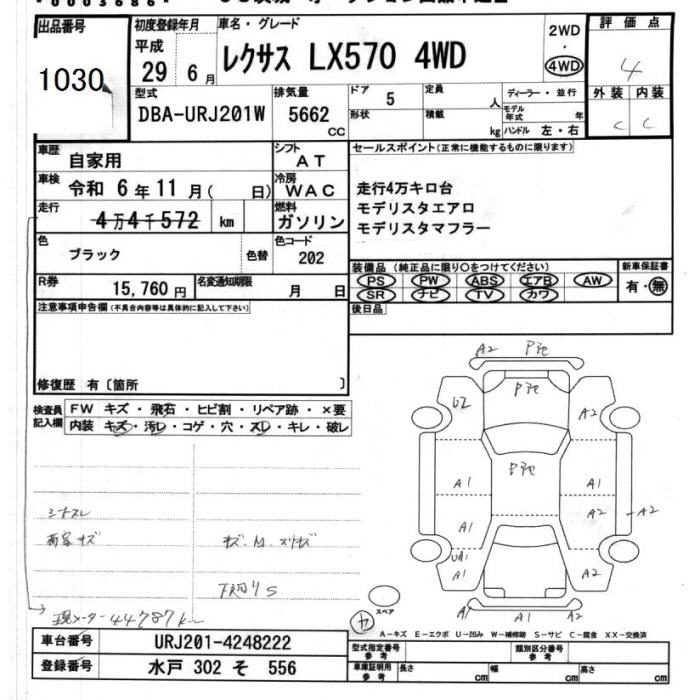 出品番号
1030
初度登録年月
平成
29 6 月
車名・グレード
レクサス LX570 4WD
2WD
・
4WD
評価点
4
型式
DBA-URJ201W
排気量
5662
CC
ドア
5
形状
定員
人
積載
kg
ディーラー・並行
モデル年式 年
ハンドル 左・右
外装 内装
C C
車歴
自家用
シフト
AT
車検
令和 6 年 11 月 ( 日)
冷房
WAC
走行
4万4千572 km
燃料
ガソリン
色
ブラック
色替
色コード
202
R券
15,760 円
名変通知期限
月 日
セールスポイント(正常に機能するものに限ります)
走行4万キロ台
モデリスタエアロ
モデリスタマフラー
装備品 (純正品に限り○をつけてください)
PS PW ABS エアB AW
SR ナビ TV カワ
新車保証書
有・無
後日品
注意事項申告欄(不具合内容等は具体的に記入して下さい)
修復歴 有〔箇所 〕
検査員
記入欄
FW キズ・飛石・ヒビ割・リペア跡・×要
内装 キズ・汚レ・コゲ・穴・スレ・キレ・破レ
シートスレ
下廻りS
現メーター44787km
A2
U2
A2
A1
A1
A1
A2
A2
A1
A1
A2
A1
A1
A2
スペア
A-キズ E-エクボ U-凹み W-補修跡 S-サビ C-腐食 XX-交換済
車台番号
URJ201-4248222
登録番号
水戸 302 そ 556
型式指定番号
参考
類別区分番号
参考
車庫証明用
参考
長さ cm
幅 cm
高さ cm